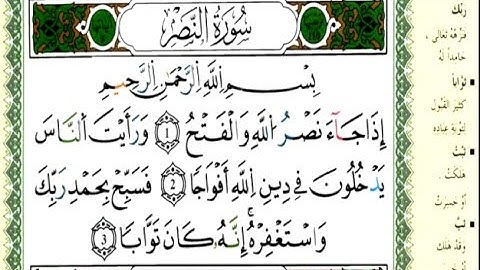 سُورَةُ النَّصْرِ
بِسْمِ اللَّهِ الرَّحْمَٰنِ الرَّحِيمِ
إِذَا جَآءَ نَصْرُ اللَّهِ وَالْفَتْحُ ١ وَرَأَيْتَ النَّاسَ
يَدْخُلُونَ فِي دِينِ اللَّهِ أَفْوَاجًا ٢ فَسَبِّحْ بِحَمْدِ رَبِّكَ
وَاسْتَغْفِرْهُ ۚ إِنَّهُ كَانَ تَوَّابًا ٣
رَبِّكَ
فنزّهه تعالى،
حامداً له
تَوَّاباً
كثير القبول
لتوبة عباده
تَبَّتْ
هلكت
أو خسرت
تَبَّ
وقد هلك